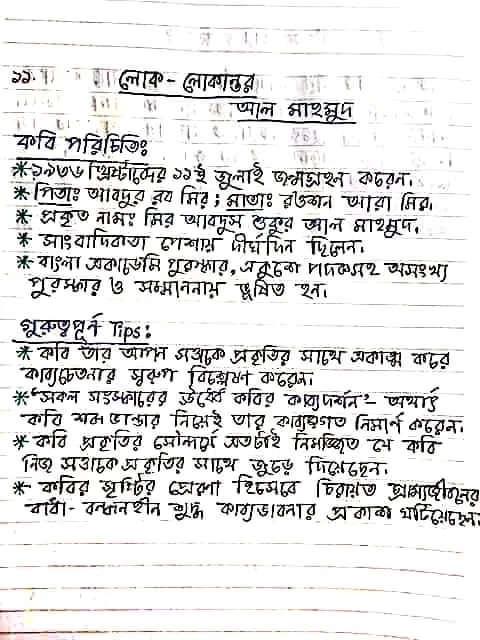 ১১.
লোক - লোকান্তর
আল মাহমুদ
কবি পরিচিতিঃ
* ১৯৩৬ খ্রিস্টাব্দের ১১ই জুলাই জন্মগ্রহন করেন।
* পিতাঃ আবদুর রব মির ; মাতাঃ রওশন আরা মির।
* প্রকৃত নামঃ মির আবদুস শুকুর আল মাহমুদ।
* সাংবাদিকতা পেশায় দীর্ঘদিন ছিলেন।
* বাংলা একাডেমি পুরস্কার, একুশে পদকসহ অসংখ্য
পুরস্কার ও সম্মাননায় ভূষিত হন।
গুরুত্বপূর্ন Tips :
* কবি তার আপন সত্তাকে প্রকৃতির সাথে একাত্ম করে
কাব্যচেতনার স্বরূপ বিশ্লেষণ করেন।
* "সকল সংস্কারের ঊর্ধ্বে কবির কাব্যদর্শন"- অর্থাৎ
কবি শব্দ ভান্ডার নিয়েই তার কাব্যজগত নির্মাণ করেন।
* কবি প্রকৃতির সৌন্দর্যে এতটাই নিমজ্জিত যে কবি
নিজ সত্তাকে প্রকৃতির সাথে জুড়ে দিয়েছেন।
* কবির সৃষ্টির প্রেরণা হিসেবে চিরায়ত গ্রাম্যজীবনের
বাধা- বন্ধনহীন শুদ্ধ কাব্যভাবনার প্রকাশ ঘটিয়েছেন।